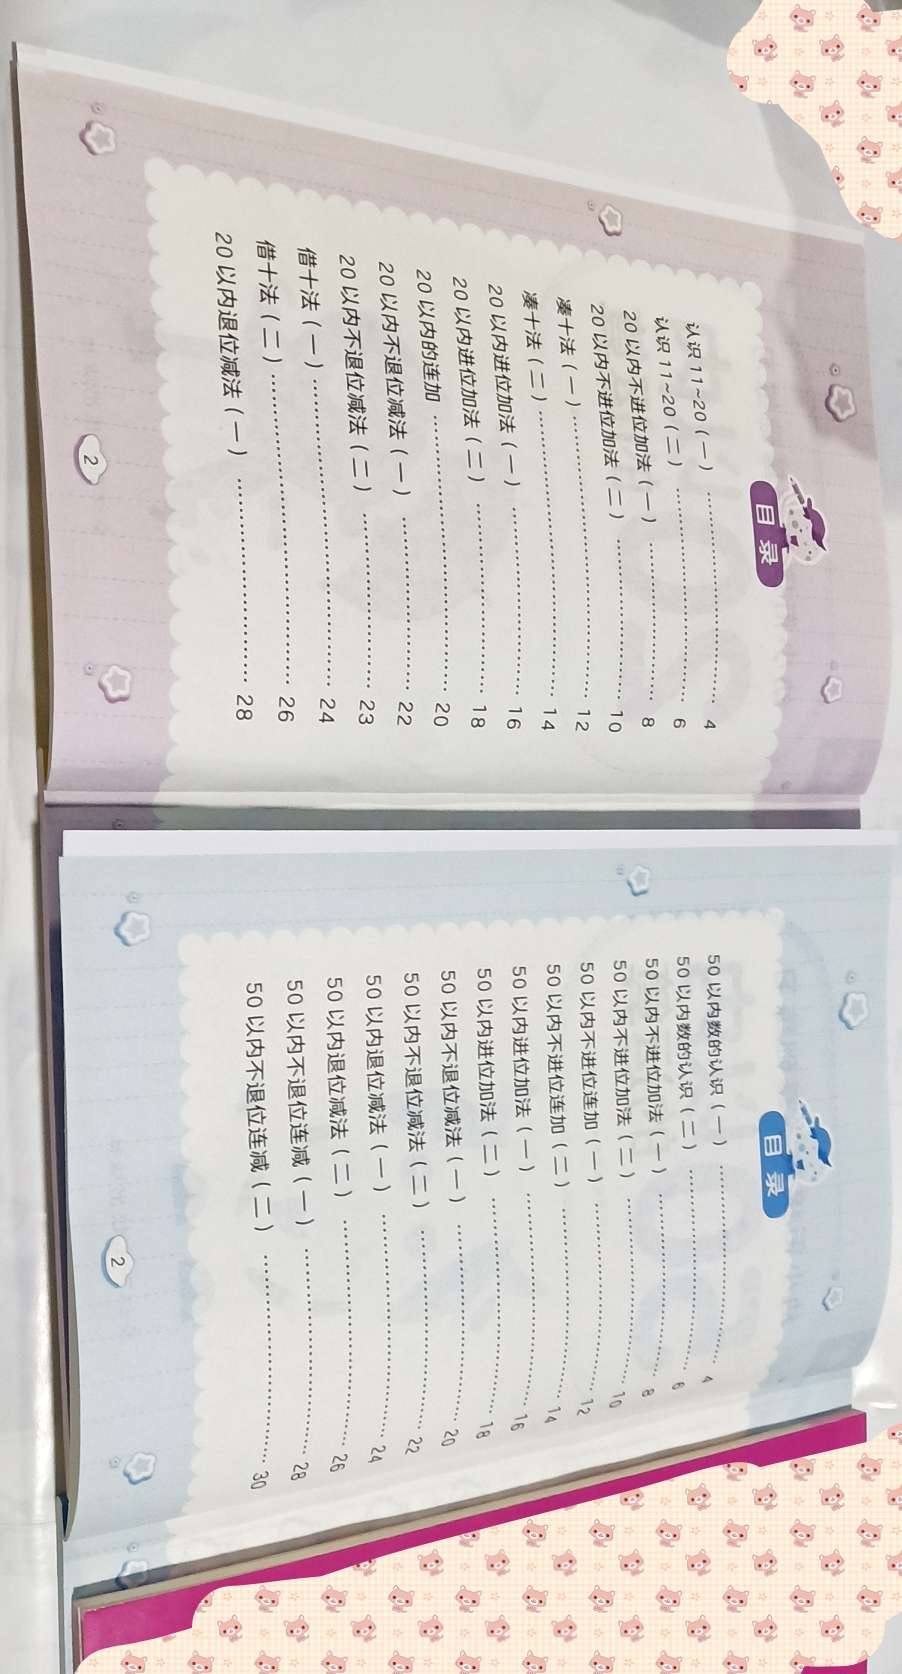 目录
认识 11~20（一） ………… 4
认识 11~20（二） ………… 6
20 以内不进位加法（一） ………… 8
20 以内不进位加法（二） ………… 10
凑十法（一） ………… 12
凑十法（二） ………… 14
20 以内进位加法（一） ………… 16
20 以内进位加法（二） ………… 18
20 以内的连加 ………… 20
20 以内不退位减法（一） ………… 22
20 以内不退位减法（二） ………… 23
借十法（一） ………… 24
借十法（二） ………… 26
20 以内退位减法（一） ………… 28
2
目录
50 以内数的认识（一） ………… 4
50 以内数的认识（二） ………… 6
50 以内不进位加法（一） ………… 8
50 以内不进位加法（二） ………… 10
50 以内不进位连加（一） ………… 12
50 以内不进位连加（二） ………… 14
50 以内进位加法（一） ………… 16
50 以内进位加法（二） ………… 18
50 以内不退位减法（一） ………… 20
50 以内不退位减法（二） ………… 22
50 以内退位减法（一） ………… 24
50 以内退位减法（二） ………… 26
50 以内不退位连减（一） ………… 28
50 以内不退位连减（二） ………… 30
2